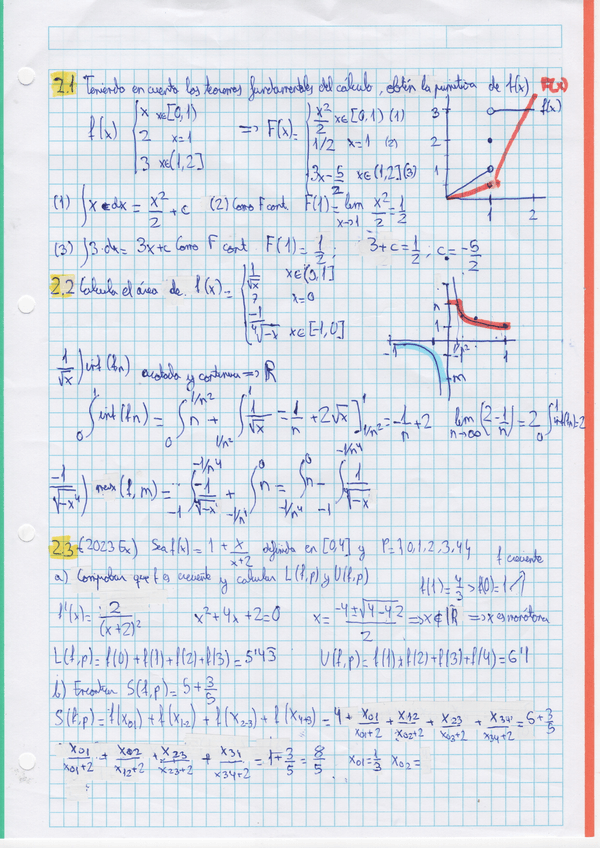 2.1 Teniendo en cuenta los teoremas fundamentales del cálculo, obtén la primitiva de f(x) F(x)
f(x) { x x∈[0,1) ; 2 x=1 ; 3 x∈(1,2] => F(x)= { x²/2 x∈[0,1) (1) ; 1/2 x=1 (2) ; 3x-5/2 x∈(1,2] (3)
3 2 1 1 2 f(x)
(1) ∫x dx = x²/2 + c (2) Como F cont. F(1) = lim x→1 x²/2 = 1/2
(3) ∫3·dx = 3x+c Como F cont F(1) = 1/2 ; 3+c = 1/2 ; c = -5/2
2.2 Calcula el área de f(x) = { 1/√x x∈(0,1] ; ? x=0 ; -1/⁴√-x x∈[-1,0]
n 1 -1 1/n² 1 -1 m
1/√x ) inf(f,n) acotada y continua => R
₀∫¹ inf(f,n) = ₀∫^1/n² n + ₁/n²∫¹ 1/√x = 1/n + 2√x ]¹ 1/n² = -1/n + 2 lim n→∞ (2 - 1/n) = 2 ₀∫¹ inf(f,n) = 2
-1/√-x⁴ ) max(f,m) = ₋₁∫^-1/n⁴ -1/⁴√-x + ∫⁰ -1/n⁴ n = ∫⁰ -1/n⁴ n - ₋₁∫^-1/n⁴ 1/⁴√-x
2.3 (2023 Ex) Sea f(x) = 1 + x/x+2 definida en [0,4] y P={0,1,2,3,4}
f creciente
a) Comprobar que f es creciente y calcular L(f,p) y U(f,p)
f(1) = 4/3 > f(0) = 1
f'(x) = 2/(x+2)² x²+4x+2=0 x = -4±√4-4·2 / 2 => x∉R => x es monótona
L(f,p) = f(0) + f(1) + f(2) + f(3) = 5'43 U(f,p) = f(1) + f(2) + f(3) + f(4) = 6'1
b) Encontrar S(f,p) = 5 + 3/5
S(f,p) = f(x₀₁) + f(x₁₋₂) + f(x₂₋₃) + f(x₄₊₃) = 4 + x₀₁/x₀₁+2 + x₁₂/x₀₂+2 + x₂₃/x₀₃+2 + x₃₄/x₃₄+2 = 5 + 3/5
x₀₁/x₀₁+2 + x₀₂/x₁₂+2 + x₂₃/x₂₃+2 + x₃₄/x₃₄+2 = 1 + 3/5 = 8/5 x₀₁ = 1/3 x₀₂ =